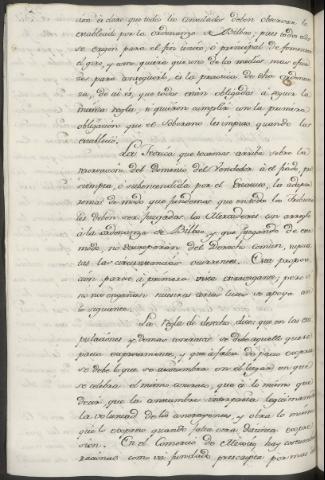 ran á claro que todos los Consulados deben observar lo
establecido por la ordenanza de Bilbao, pues todos ellos
se erigen para el fin unico, ó principal de fomentar
el giro, y como quiera que uno de los medios mas
para conseguirlo, es la practica de dha ordenan-
za, de ai es, que todos están obligados á seguir la
misma regla, si quieren cumplir con la primera
obligacion que el Soberano les impuso quando los
estableció.
La Teorica que tocamos arriba sobre la
del dominio del Vendedor á el fiado,
ó la adapta-
remos de modo que fundemos que en todo lo
les deben ser juzgados los Mercaderes con arreglo
á la ordenanza de Bilbao y que juzgando de este
modo, no del Derecho comun, supues-
tas las circunstancias ocurrentes. Esta proposi-
cion parece á primera vista arrogante; pero si
no nos engañan nuestras cortas luces se apoya en
lo siguiente.
La regla de derecho, dice, que en las esti-
pulaciones y demas contratos se debe aquello que se
pacta expresamente, y que á falta de pacto expreso
se debe lo que se acostumbra en el lugar en que
se celebra el mismo contrato, que es lo mismo que
decir, que la costumbre interpreta legitimamente
la voluntad de los contrayentes, y obra lo mismo
que lo expreso quando falta otra distinta expre-
sion. En el Comercio de Mexico hay costumbre
como vá fundado por mas